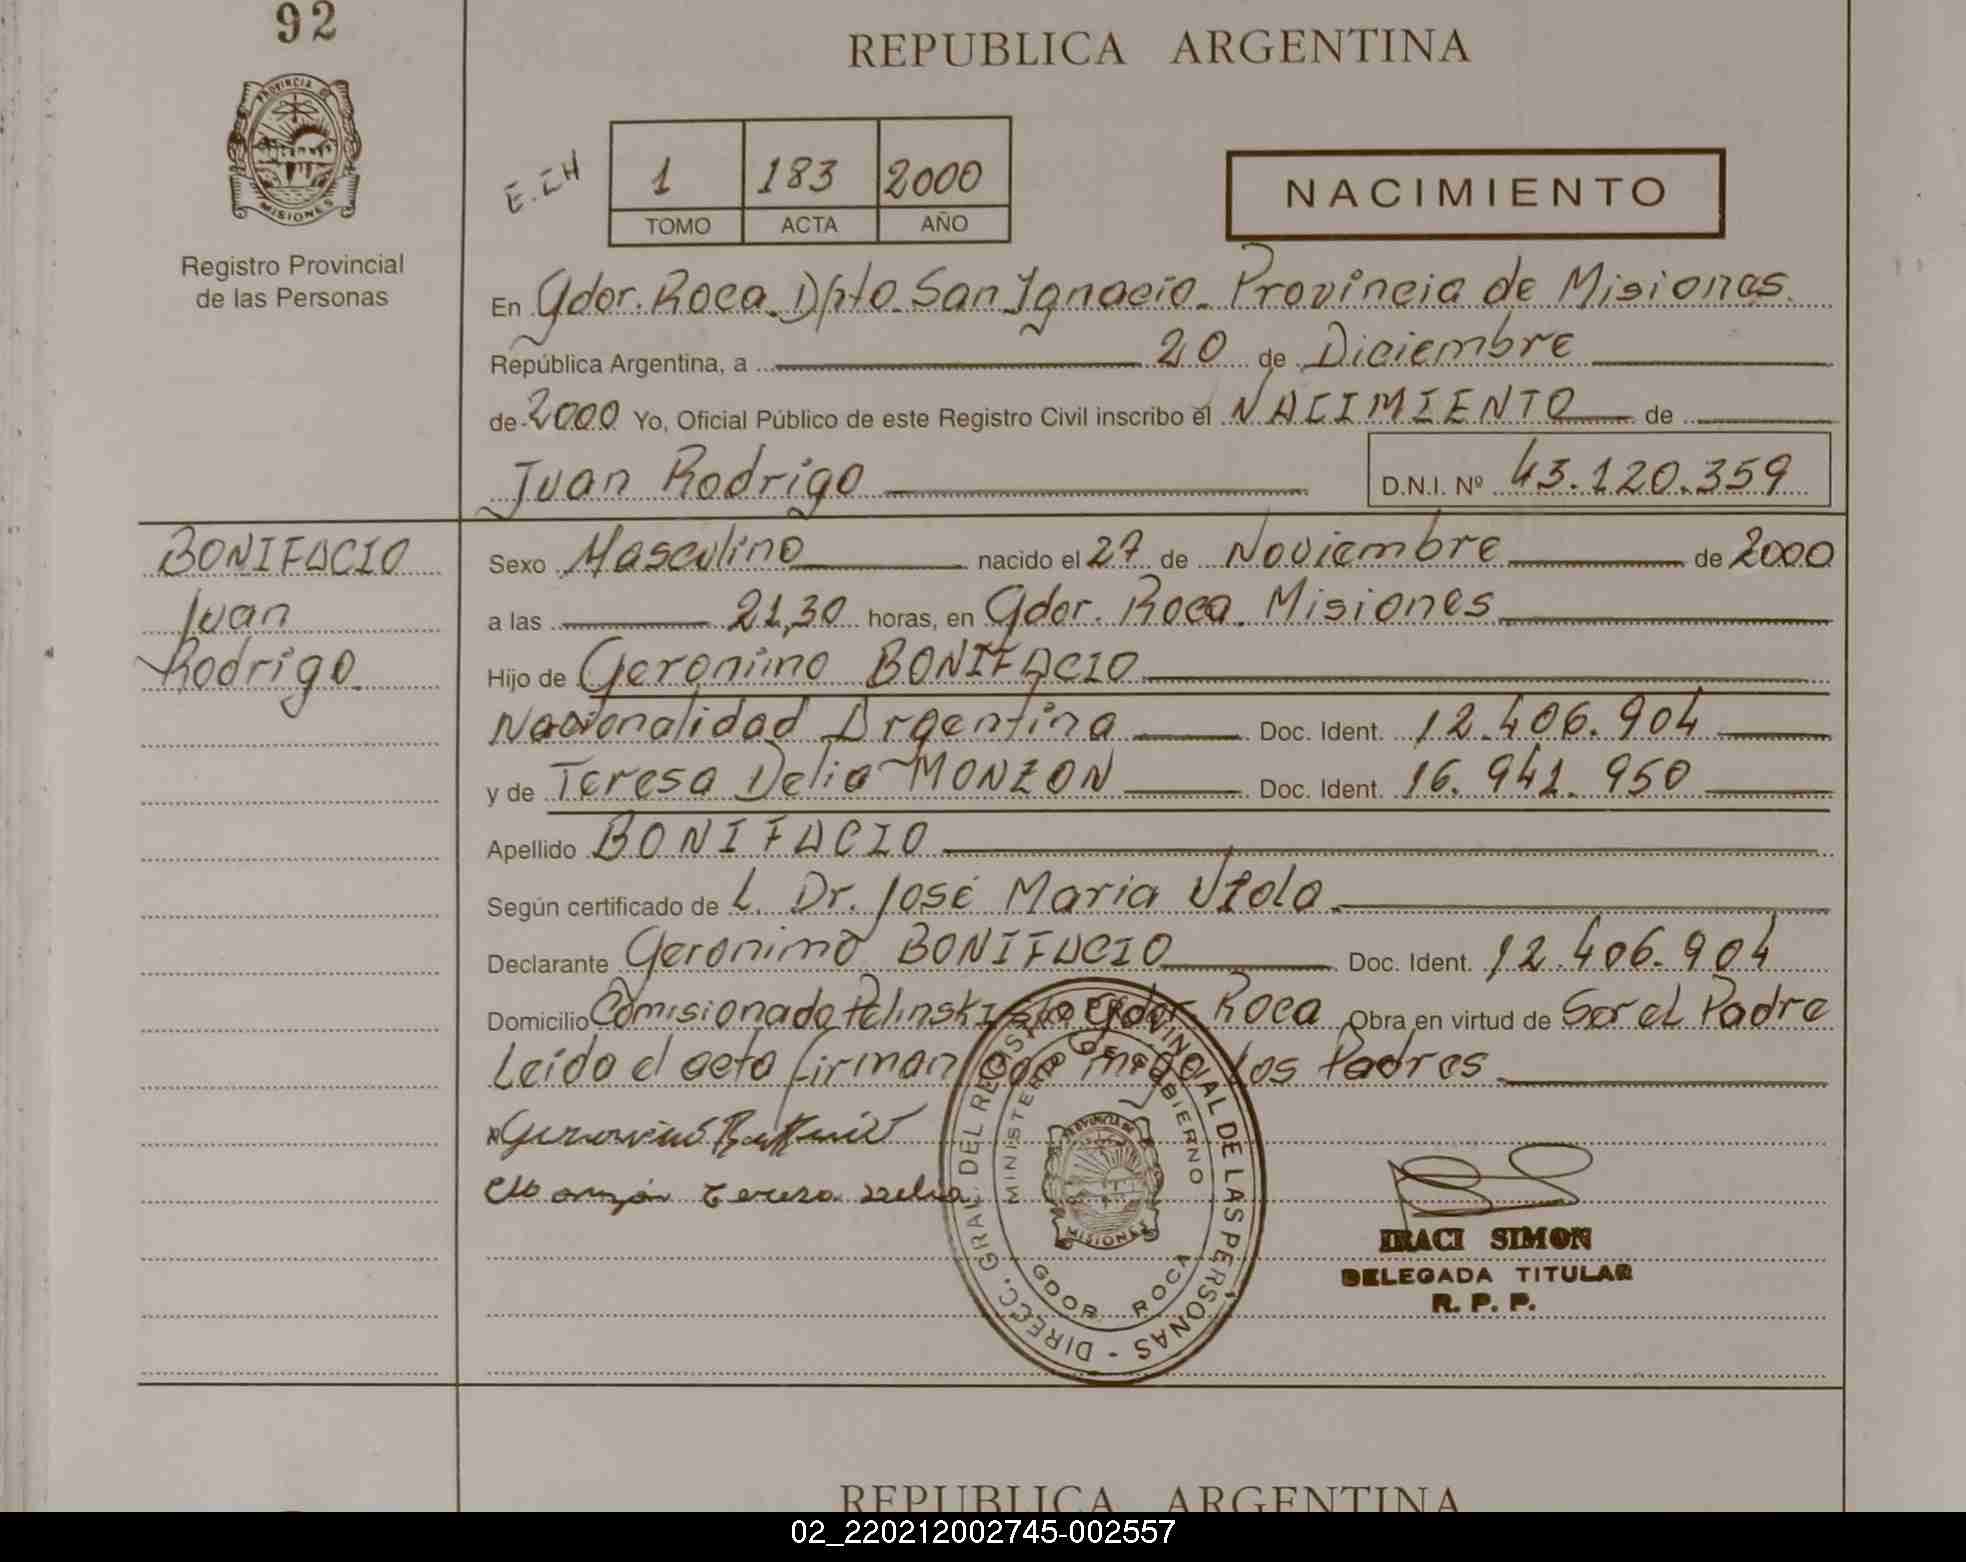 92
REPUBLICA ARGENTINA
PROVINCIA DE MISIONES
Registro Provincial
de las Personas
E.CH
1 183 2000
TOMO ACTA AÑO
NACIMIENTO
En Gdor. Roca. Dpto. San Ignacio. Provincia de Misiones.
República Argentina, a 20 de Diciembre
de 2000 Yo, Oficial Público de este Registro Civil inscribo el NACIMIENTO de
Juan Rodrigo D.N.I. Nº 43.120.359
BONIFACIO
Juan
Rodrigo
Sexo Masculino nacido el 27 de Noviembre de 2000
a las 21,30 horas, en Gdor. Roca. Misiones
Hijo de Geronimo BONIFACIO
Nacionalidad Argentina Doc. Ident. 12.406.904
y de Teresa Delia MONZON Doc. Ident. 16.941.950
Apellido BONIFACIO
Según certificado de L. Dr. José Maria Viola
Declarante Geronimo BONIFACIO Doc. Ident. 12.406.904
Domicilio Comisionado Polinski Gdor Roca Obra en virtud de Ser el Padre
Leido el acta firman Los Padres
Monzón Teresa Delia
DIRECC. GRAL. DEL REGISTRO PROVINCIAL DE LAS PERSONAS -
MINISTERIO DE GOBIERNO
PROVINCIA DE MISIONES
GDOR. ROCA
IRACI SIMON
DELEGADA TITULAR
R. P. P.
REPUBLICA ARGENTINA
02_220212002745-002557